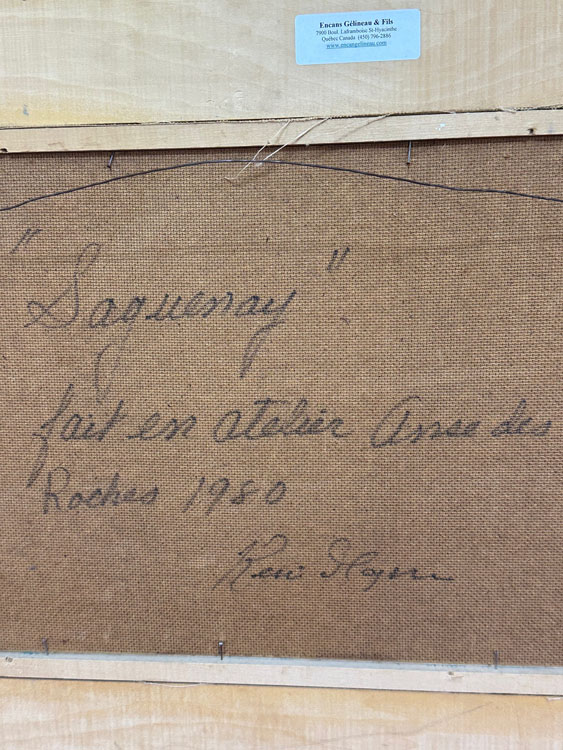 Encans Gélineau & Fils
7900 Boul. Laframboise St-Hyacinthe
Québec Canada (450) 796-2886
www.encangelineau.com
"Saguenay"
fait en atelier Anse des
Roches 1980